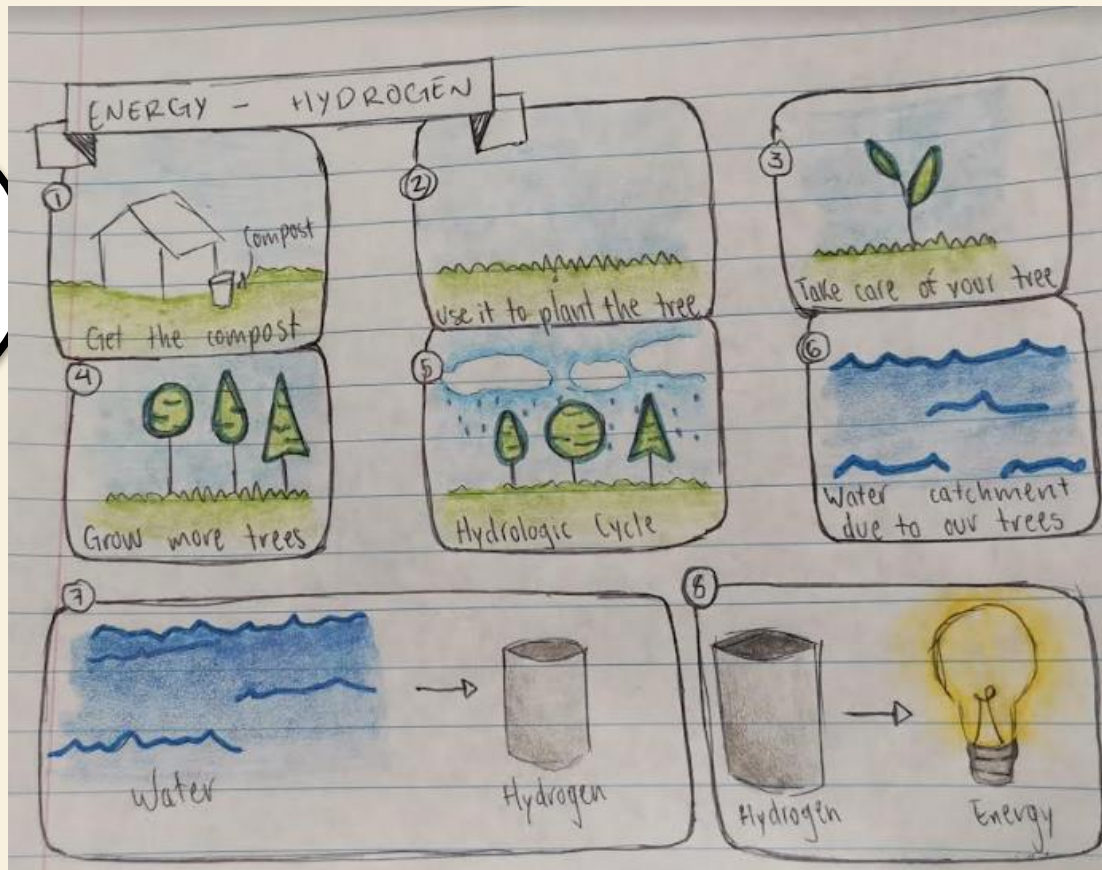 ENERGY - HYDROGEN
1
compost
Get the compost
2
use it to plant the tree
3
Take care of your tree
4
Grow more trees
5
Hydrologic Cycle
6
Water catchment
due to our trees
7
Water
Hydrogen
8
Hydrogen
Energy